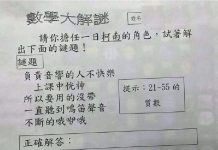 數學大解謎
姓名
請你擔任一日柯南的角色,試著解
出下面的謎題!
謎題
負責音響的人不快樂
上課中恍神
所以要用的沒帶
一直聽到鳴笛聲音
不斷的哦咿哦
提示:21~55 的
質數
正確解答: